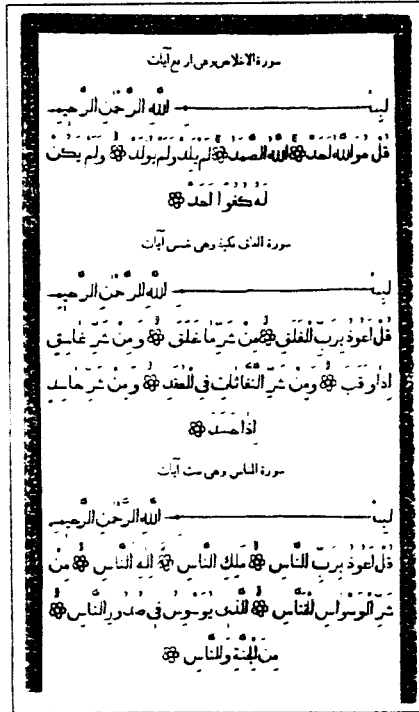 سورة الاخلاص وهى اربع آيات
بِسْمِ اللّٰهِ الرَّحْمٰنِ الرَّحِيمِ
قُلْ هُوَ اللّٰهُ اَحَدٌ ۝ اَللّٰهُ الصَّمَدُ ۝ لَمْ يَلِدْ وَلَمْ يُولَدْ ۝ وَلَمْ يَكُنْ
لَهُ كُفُوًا اَحَدٌ ۝
سورة الفلق مكية وهى خمس آيات
بِسْمِ اللّٰهِ الرَّحْمٰنِ الرَّحِيمِ
قُلْ اَعُوذُ بِرَبِّ الْفَلَقِ ۝ مِنْ شَرِّ مَا خَلَقَ ۝ وَمِنْ شَرِّ غَاسِقٍ
اِذَا وَقَبَ ۝ وَمِنْ شَرِّ النَّفَّاثَاتِ فِى الْعُقَدِ ۝ وَمِنْ شَرِّ حَاسِدٍ
اِذَا حَسَدَ ۝
سورة الناس وهى ست آيات
بِسْمِ اللّٰهِ الرَّحْمٰنِ الرَّحِيمِ
قُلْ اَعُوذُ بِرَبِّ النَّاسِ ۝ مَلِكِ النَّاسِ ۝ اِلٰهِ النَّاسِ ۝ مِنْ
شَرِّ الْوَسْوَاسِ الْخَنَّاسِ ۝ اَلَّذِى يُوَسْوِسُ فِى صُدُورِ النَّاسِ ۝
مِنَ الْجِنَّةِ وَالنَّاسِ ۝